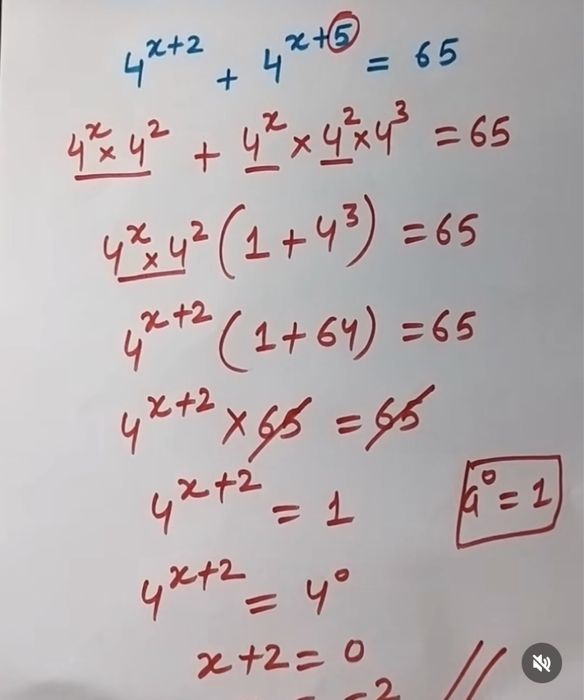 4^{x+2} + 4^{x+5} = 65
4^x × 4^2 + 4^x × 4^2 × 4^3 = 65
4^x × 4^2 (1 + 4^3) = 65
4^{x+2} (1 + 64) = 65
4^{x+2} × 65 = 65
4^{x+2} = 1
a^0 = 1
4^{x+2} = 4^0
x + 2 = 0
= -2 //